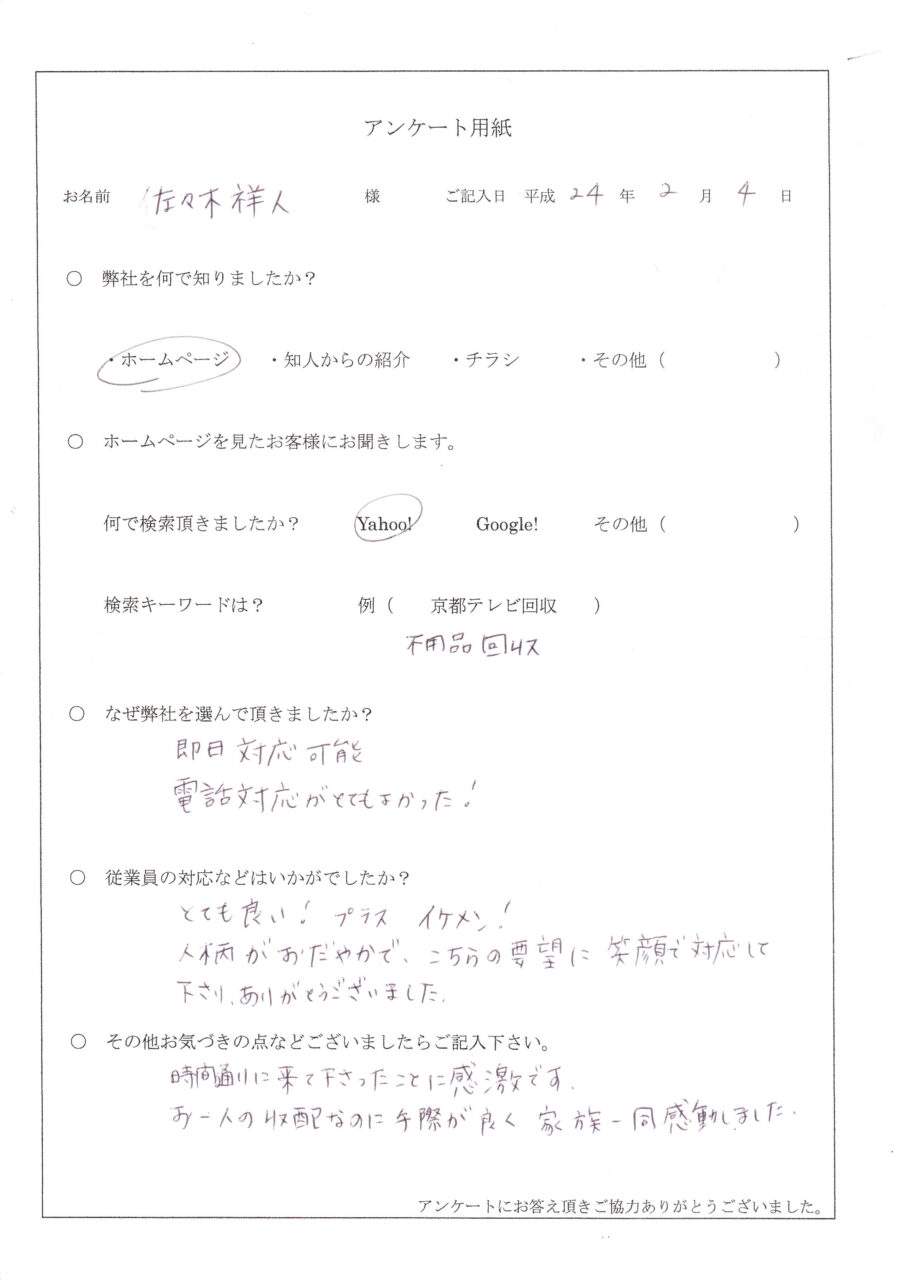 アンケート用紙
お名前 佐々木祥人 様 ご記入日 平成 24 年 2 月 4 日
○ 弊社を何で知りましたか？
・ホームページ ・知人からの紹介 ・チラシ ・その他（ ）
○ ホームページを見たお客様にお聞きします。
何で検索頂きましたか？ Yahoo! Google! その他（ ）
検索キーワードは？ 例（ 京都テレビ回収 ）
不用品回収
○ なぜ弊社を選んで頂きましたか？
即日対応可能
電話対応がとてもよかった！
○ 従業員の対応などはいかがでしたか？
とても良い！ プラス イケメン！
人柄がおだやかで、こちらの要望に笑顔で対応して
下さり、ありがとうございました。
○ その他お気づきの点などございましたらご記入下さい。
時間通りに来て下さったことに感激です。
お一人の収配なのに手際が良く 家族一同感動しました。
アンケートにお答え頂きご協力ありがとうございました。